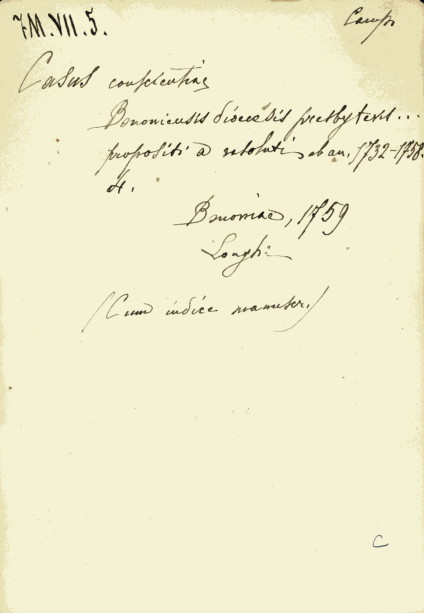 7M.VII.5.
Casus conscientiae
Bononiensis dioecesis presbyteris...
propositi a resoluti ab an. 1732-1758.
4.
Bononiae, 1759
Longhi
(Cum indice manuscr.)
C